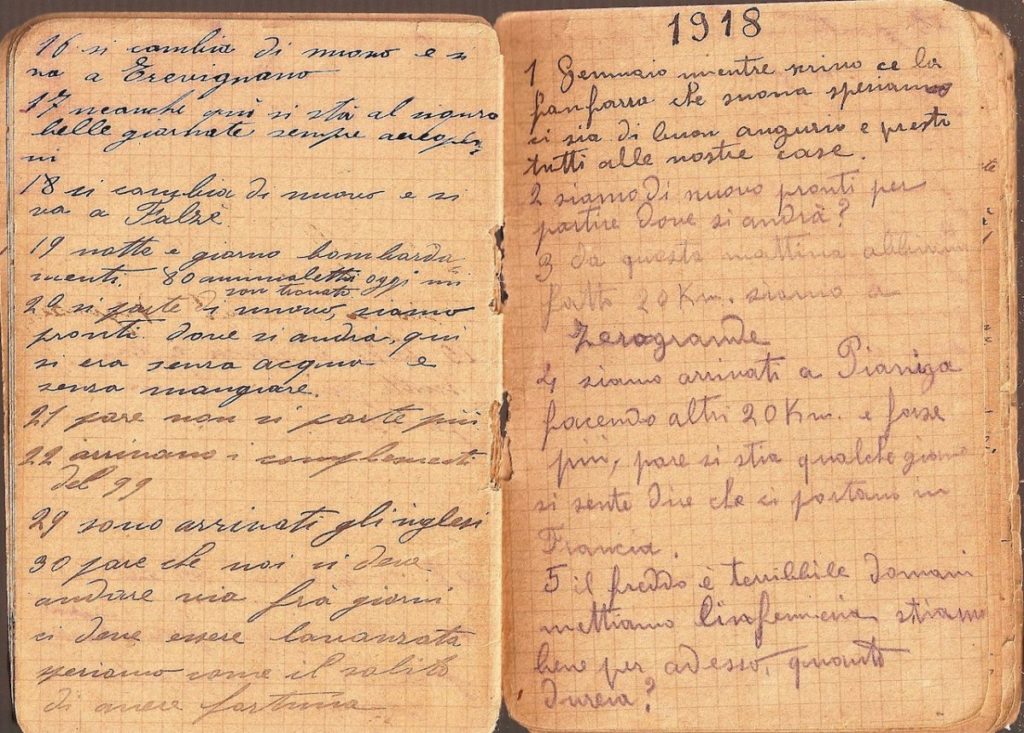 16 si cambia di nuovo e si
va a Trevignano
17 neanche qui si stà al sicuro
belle giornate sempre aeropla
ni
18 si cambia di nuovo e si
va a Falzè
19 notte e giorno bombarda=
menti. 80 ammaletti oggi mi
son trovato
20 si parte di nuovo, siamo
pronti dove si andrà, qui
si era senza acqua e
senza mangiare.
21 pare non si parte più
22 arrivano i complementi
del 99
29 sono arrivati gli inglesi
30 pare che noi si deve
andare via frà giorni
ci deve essere l'avanzata
speriamo come il solito
di avere fortuna
1918
1 Gennaio mentre scrivo ce la
fanfarra che suona speriamo
ci sia di buon augurio e presto
tutti alle nostre case.
2 siamo di nuovo pronti per
partire dove si andrà?
3 da questa mattina abbiamo
fatto 20 Km. siamo a
Zerogrande
4 siamo arrivati a Pianiga
facendo altri 20 Km. e forse
più, pare si stia qualche giorno
si sente dire che ci portano in
Francia.
5 il freddo è terribbile domani
mettiamo l'infermeria stiamo
bene per adesso, quanto
durera?